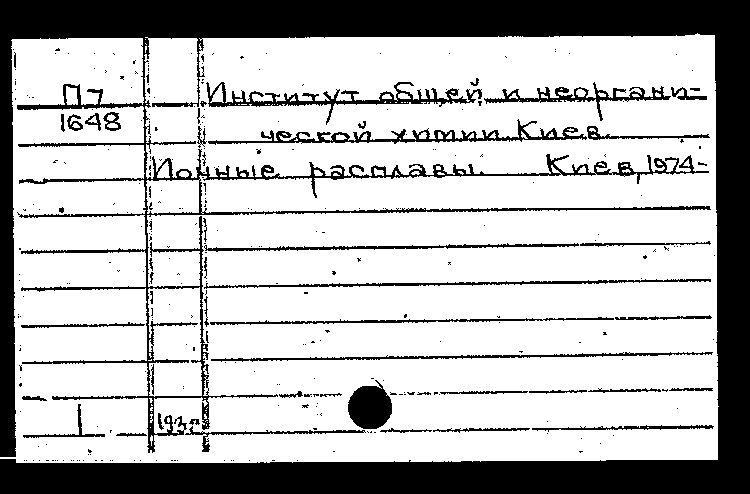 П7 Институт общей и неоргани-
1648 ческой химии. Киев.
Ионные расплавы. Киев, 1974-